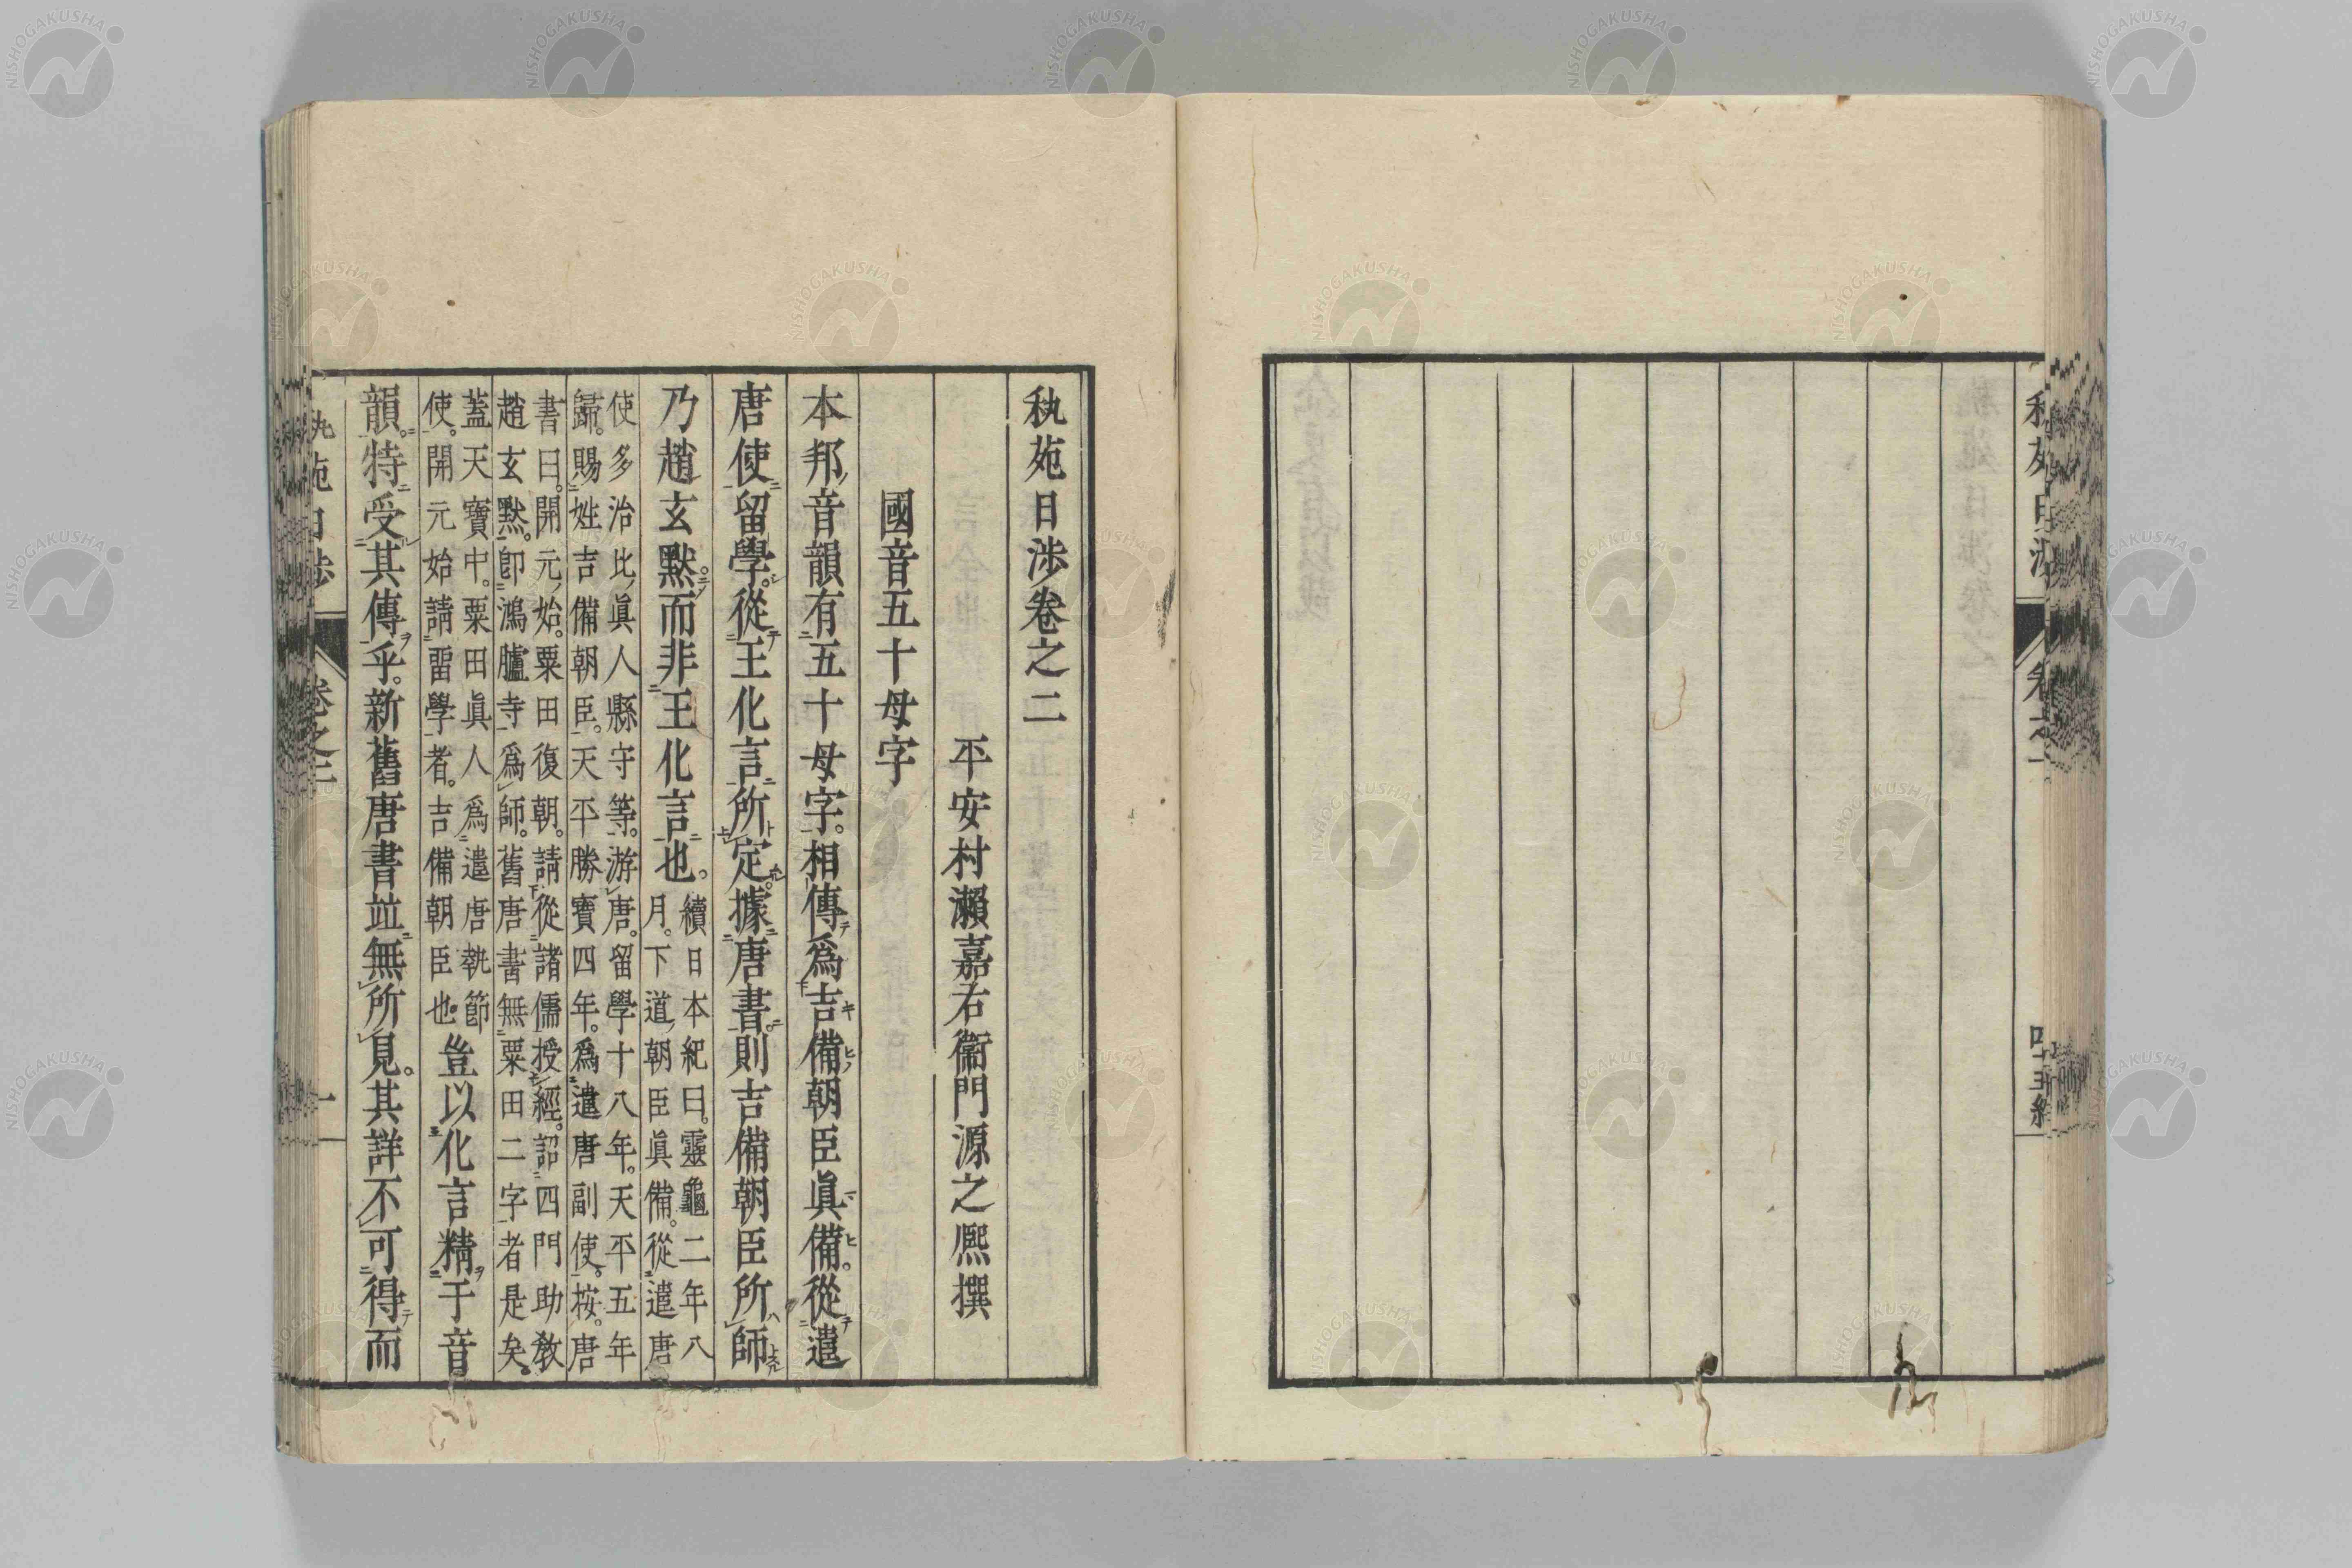 秇苑日涉卷之二
平安村瀨嘉右衞門源之熈撰
國音五十母字
本邦音韻有五十母字。相傳爲吉備朝臣眞備。從遣
唐使留學。從王化言所定。據唐書。則吉備朝臣所師
乃趙玄默。而非王化言也。
續日本紀曰。靈龜二年八
月。下道朝臣眞備。從遣唐
使多治比眞人縣守等。游唐。留學十八年。天平五年
歸。賜姓吉備朝臣。天平勝寶四年。爲遣唐副使。按。唐
書曰。開元始。粟田復朝。請從諸儒授經。詔四門助敎
趙玄默。卽鴻臚寺爲師。舊唐書無粟田二字者是矣。
蓋天寶中。粟田眞人爲遣唐執節
使。開元始請留學者。吉備朝臣也。
豈以化言精于音
韻。特受其傳乎。新舊唐書竝無所見。其詳不可得而
卷之二
一
NISHOGAKUSHA